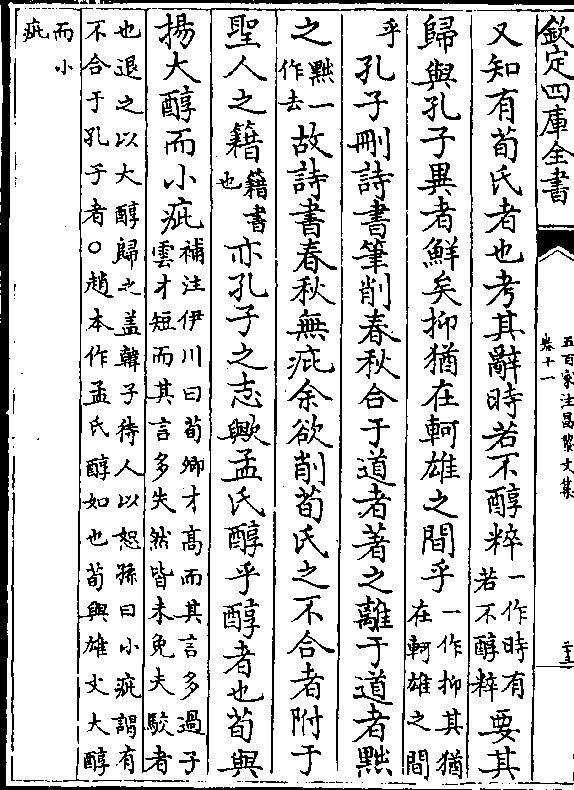 欽定四庫全書
五百家注昌黎文集
卷十一
又知有荀氏者也考其辭時若不醇粹一作時有若不醇粹要其
歸與孔子異者鮮矣抑猶在軻雄之間乎一作抑其猶在軻雄之間
乎孔子刪詩書筆削春秋合于道者著之離于道者黜
之黜一作去故詩書春秋無疵余欲削荀氏之不合者附于
聖人之籍籍書也亦孔子之志歟孟氏醇乎醇者也荀與
揚大醇而小疵補注伊川曰荀卿才高而其言多過子雲才短而其言多失然皆未免夫駮者
也退之以大醇歸之蓋韓子待人以恕孫曰小疵謂有不合于孔子者○趙本作孟氏醇如也荀與雄丈大醇
而小疵